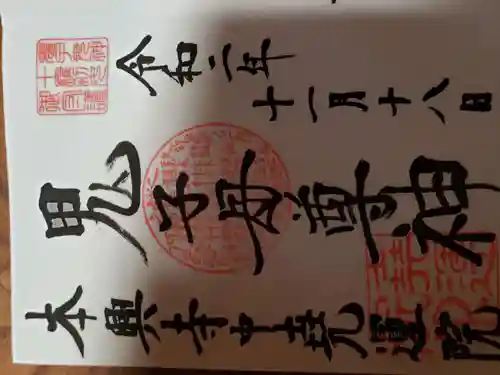 令和二年
十一月十八日
鬼子母尊神
本興寺中堯運院